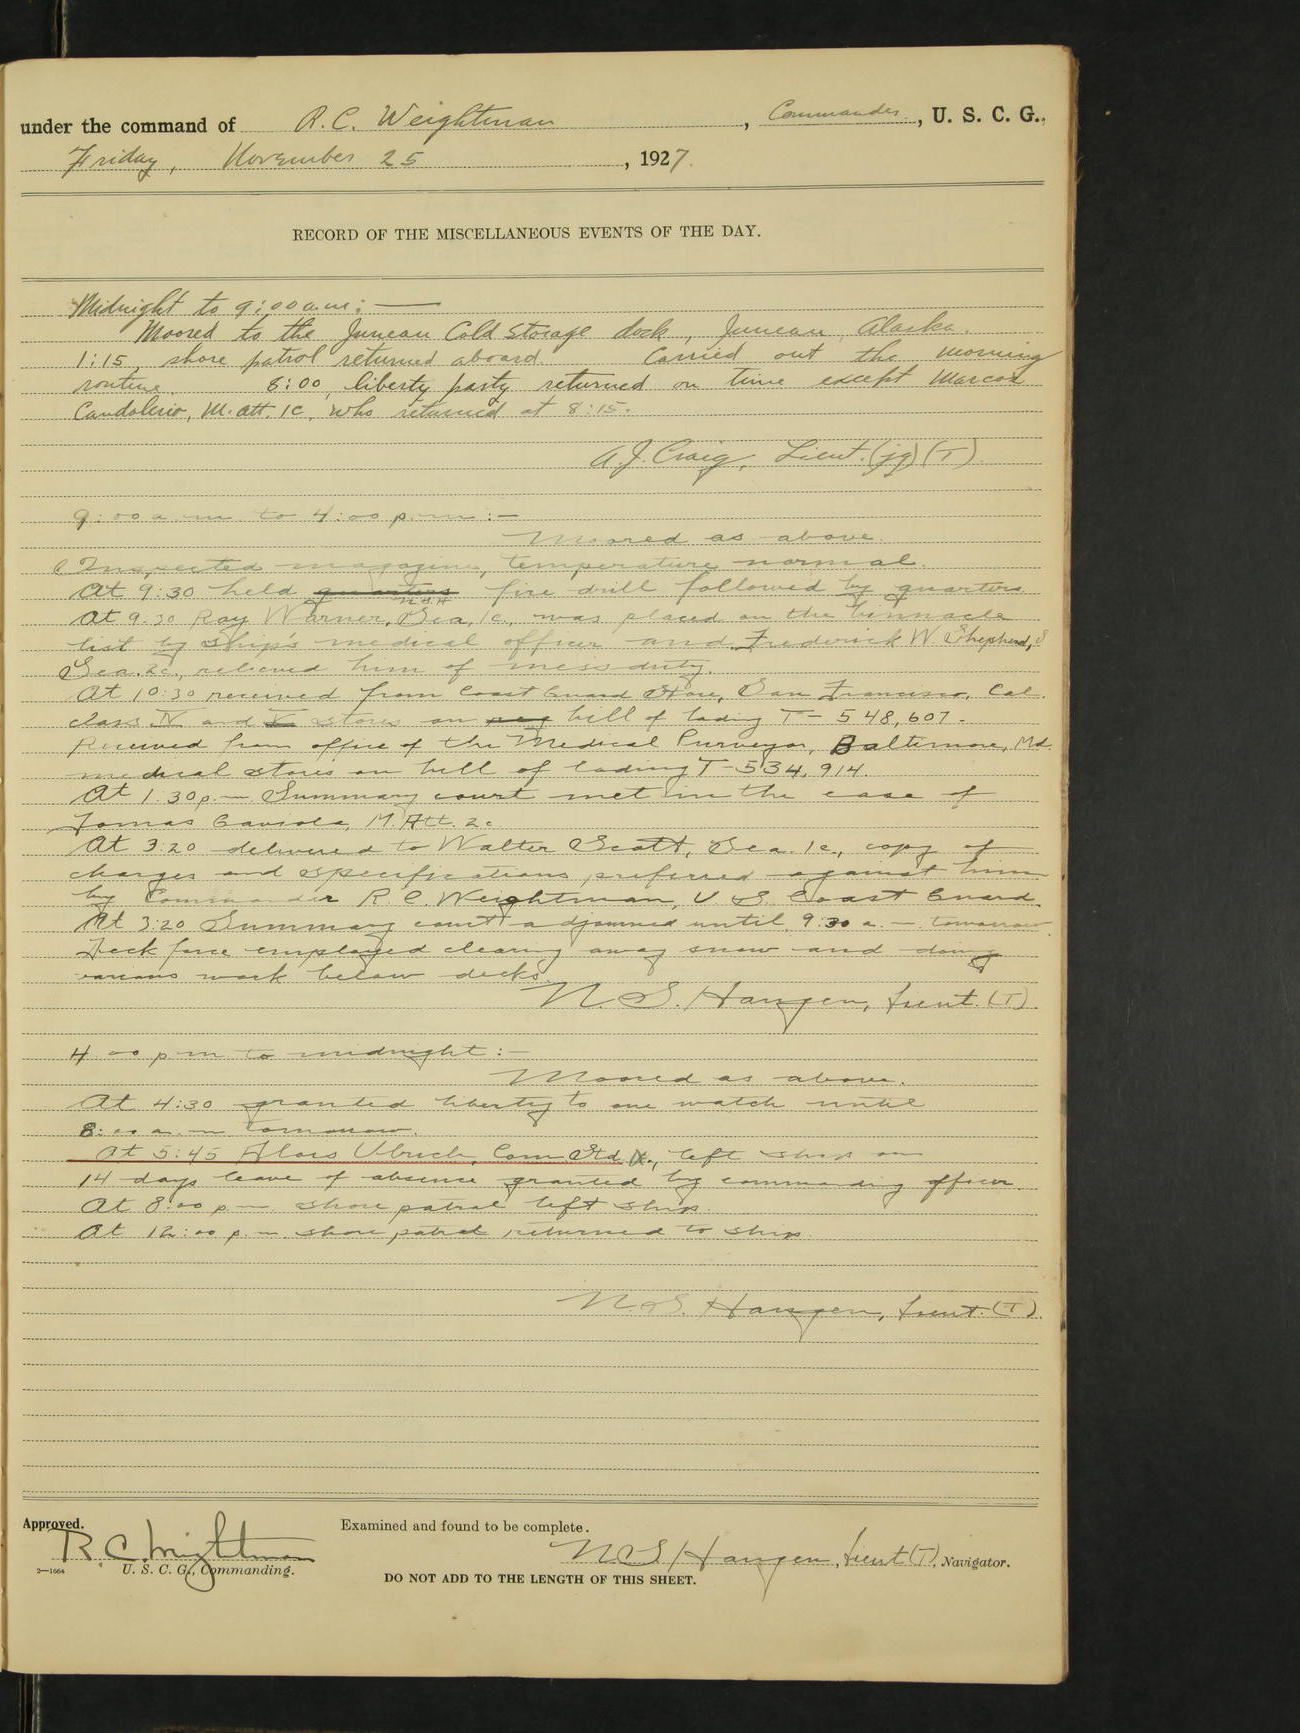 under the command of R. C. Weightman, Commander, U. S. C. G.,
Friday, November 25, 1927.
RECORD OF THE MISCELLANEOUS EVENTS OF THE DAY.
Midnight to 9:00 a.m:—
Moored to the Juneau Cold Storage dock, Juneau, Alaska.
1:15, shore patrol returned aboard. Carried out the morning
routine. 8:00, liberty party returned on time except Marcos
Candolerio, M. att. 1c, who returned at 8:15.
A. J. Craig, Lieut. (jg) (T).
9:00 a.m to 4:00 p.m:—
Moored as above.
Inspected magazine, temperature normal.
At 9:30 held quarters fire drill followed by quarters.
At 9:30 Ray Warner, Sea. 1c, was placed on the binnacle
list by ship's medical officer and Frederick W. Shepherd,
Sea. 2c, relieved him of mess duty.
At 10:30 received from Coast Guard Store, San Francisco, Cal.
class N and stores on bill of lading T-548,607.
Received from office of the Medical Purveyor, Baltimore, Md.
medical stores on bill of lading T-534,914.
At 1:30 p.m Summary court met in the case of
Tomas Gaviola, M. Att. 2c
At 3:20 delivered to Walter Scott, Sea. 1c, copy of
charges and specifications preferred against him
by Commander R. C. Weightman, U S. Coast Guard.
At 3:20 Summary court adjourned until 9:30 a.m tomorrow.
Deck force employed clearing away snow and doing
various work below decks.
N. S. Haugen, Lieut. (T).
4:00 p m to midnight:—
Moored as above.
At 4:30 granted liberty to one watch until
8:00 a.m tomorrow.
At 5:45 Alois Ulrich, Com Std, left ship on
14 days leave of absence granted by commanding officer.
At 8:00 p.m. shore patrol left ship.
At 12:00 p.m shore patrol returned to ship.
N. S. Haugen, Lieut. (T).
Approved. Examined and found to be complete.
R C Weightman N S Haugen, Lieut (T), Navigator.
2—1664 U. S. C. G., Commanding.
DO NOT ADD TO THE LENGTH OF THIS SHEET.